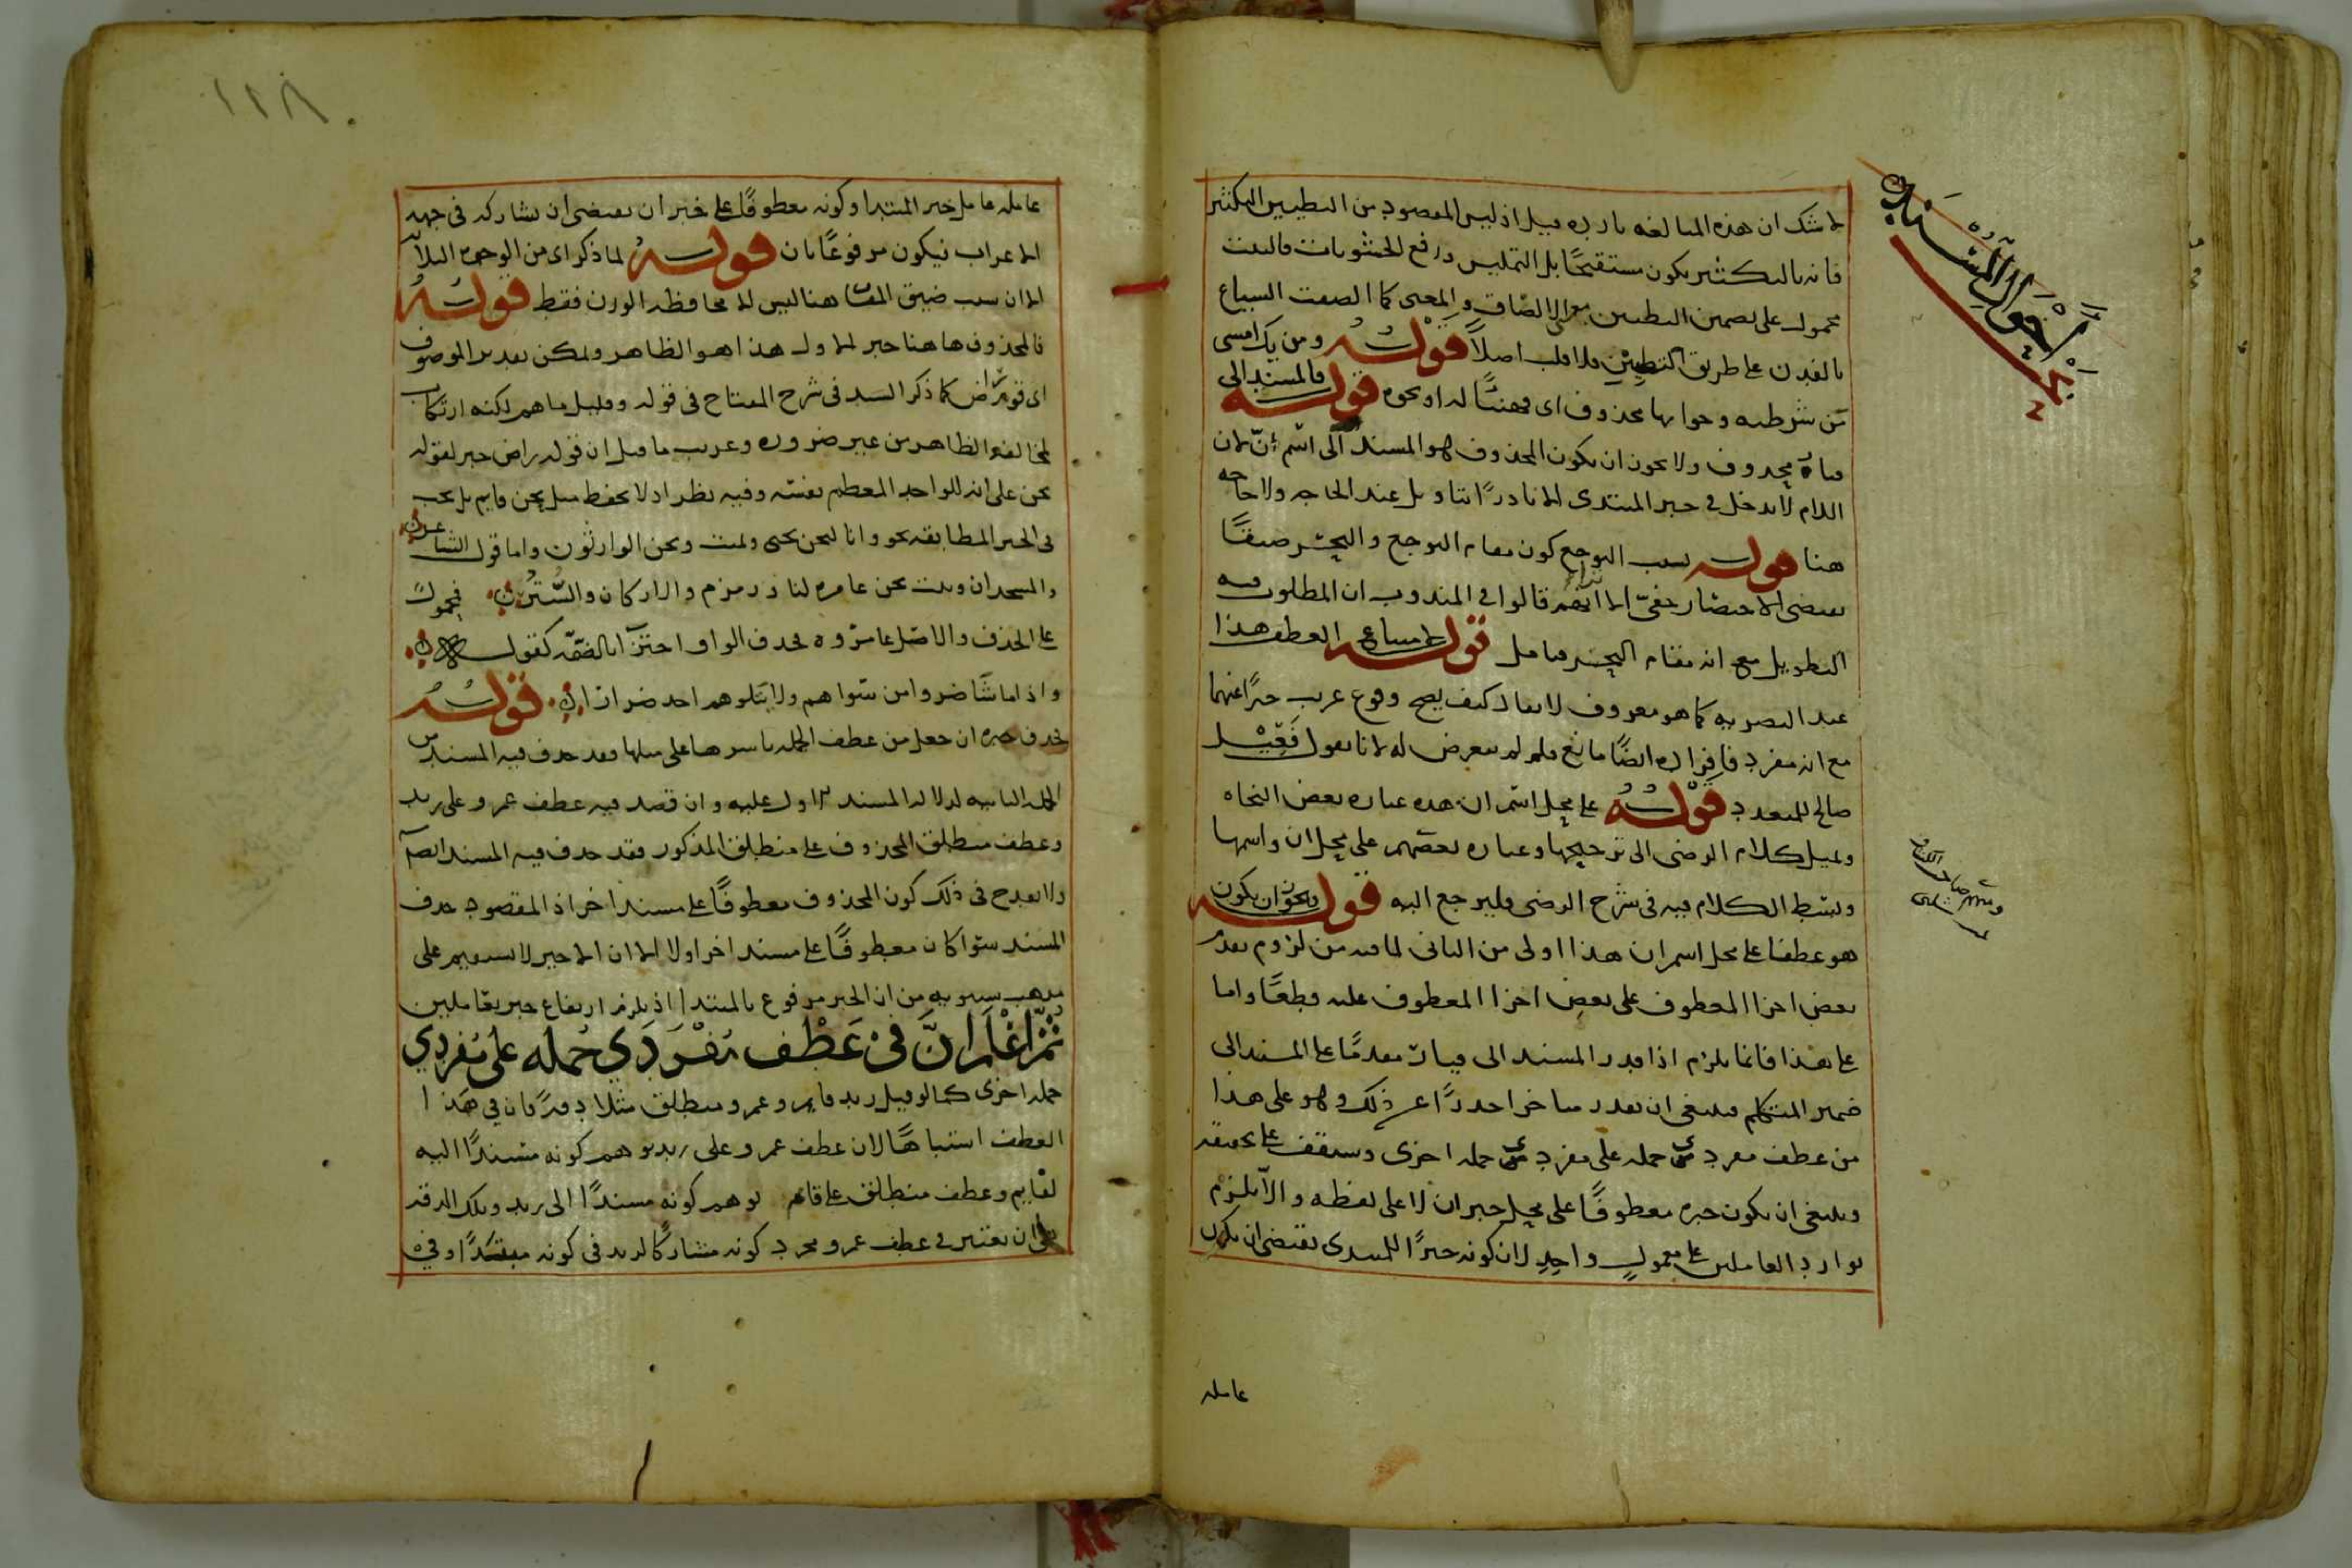 لا شك ان هذه المبالغه بارده قيل اذ ليس المقصود من التطيين التكثير
فانه بالتكثير يكون مستقبحًا بل التمليس ورفع الخشونات فالبيت
محمول على تضمين التطيين معنى الالصاق والمعنى كما الصقت السياع
بالفدن على طريق التطيين فلا قلب اصلاً قوله ومن يك امسى
من شرطيه وجوابها محذوف اى فهنيئًا له او نحوه قوله فالمسند الى
قيار محذوف ولا يجوز ان يكون المحذوف هو المسند الى اسم انّ لان
اللام لا يدخل في خبر المبتدى الا نادرًا بتاويل عند الحاجه ولا حاجه
هنا قوله بسبب التوجع كون مقام التوجع والتحسر ضيقًا
يقتضى الاختصار خفىّ الا انهم قالوا فى المندوب ان المطلوب فيه
التطويل مع انه مقام التحسر فتامل قوله لامتناع العطف هذا
عند البصريه كما هو معروف لا يقال كيف يصح وقوع غريب خبرًا عنهما
مع انه مفرد فافراده ايضًا مانع فلم لم يتعرض له لانا نقول فَعِيْل
صالح للمتعدد قوله على محل اسم ان هذه عباره بعض النحاه
ويميل كلام الرضى الى ترجيحها وعباره بعضهم على محل ان واسمها
وبسط الكلام فيه فى شرح الرضى فليرجع اليه قوله ويجوز ان يكون
هو عطفا على محل اسم ان هذا اولى من الثانى لما فيه من لزوم تقدم
بعض اجزا المعطوف على بعض اجزا المعطوف عليه قطعًا واما
على هذا فانما يلزم اذا قدر المسند الى قيار مقدمًا على المسند الى
ضمير المتكلم فينبغى ان يقدر متاخرا حذرًا عن ذلك وهو على هذا
من عطف مفرد من جمله على مفرد من جمله اخرى وستقف على تحقيقه
وينبغى ان يكون خبره معطوفًا على محل خبر ان لا على لفظه والا يلزم
توارد العاملين على معمولٍ واحدٍ لان كونه خبرًا للمبتدى يقتضى ان يكون
عامله
احوال المسند
عامله عامل خبر المبتدا وكونه معطوفًا على خبر ان يقتضى ان يشاركه فى جهه
الاعراب فيكون مرفوعًا بان قوله لما ذكر اى من الوجوه الثلاثه
الا ان سبب ضيق المقام هنا ليس الا محافظه الوزن فقط قوله
فالمحذوف هاهنا خبر الاول هذا هو الظاهر ويمكن تقدير الموصوف
اى قوم راض كما ذكر السيد فى شرح المفتاح فى قوله وقليل ما هم لكنه ارتكاب
لمخالفه الظاهر من غير ضروره وغريب ما قيل ان قوله راض خبر لقوله
نحن على انه للواحد المعظم نفسه وفيه نظر اذ لا يحفظ مثل نحن قايم بل يجب
فى الخبر المطابقه نحو وانا لنحن نحيى ونميت ونحن الوارثون واما قول الشاعر
والمسجدان وبيت نحن عامره لنا وزمزم والاركان والسُّتُر فمحمول
على الحذف والاصل عامروه فحذف الواو اجتزآ بالضمّه كقوله
واذا ما شآ ضروا من سواهم ولا يتلوهم احد ضرارا قوله
فحذف خبره ان جعل من عطف الجمله باسرها على مثلها فقد حذف فيه المسند من
الجمله الثانيه لدلاله المسند الاول عليه وان قصد فيه عطف عمرو على زيد
وعطف منطلق المحذوف على منطلق المذكور فقد حذف فيه المسند ايضًا
ولا يقدح فى ذلك كون المحذوف معطوفًا على مسند اخر اذ المقصود حذف
المسند سوا كان معطوفًا على مسند اخر اولا الا ان الاخير لا يستقيم على
مذهب سيبويه من ان الخبر مرفوع بالمبتدا اذ يلزم ارتفاع خبر بعاملين
ثُمّ اعْلم انَّ فى عَطْف مُفْرَدَي جُمله على مُفردي
جمله اخرى كما لو قيل زيد قايم وعمرو منطلق مثلا دقهً فان في هذا
العطف اشتباهًا لان عطف عمرو على زيد يوهم كونه مسندًا اليه
لقايم وعطف منطلق على قايم يوهم كونه مسندًا الى زيد وتلك الدقه
هى ان يعتبر فى عطف عمرو مجرد كونه مشاركًا لزيد فى كونه مبتدًا وفى
١٢٨